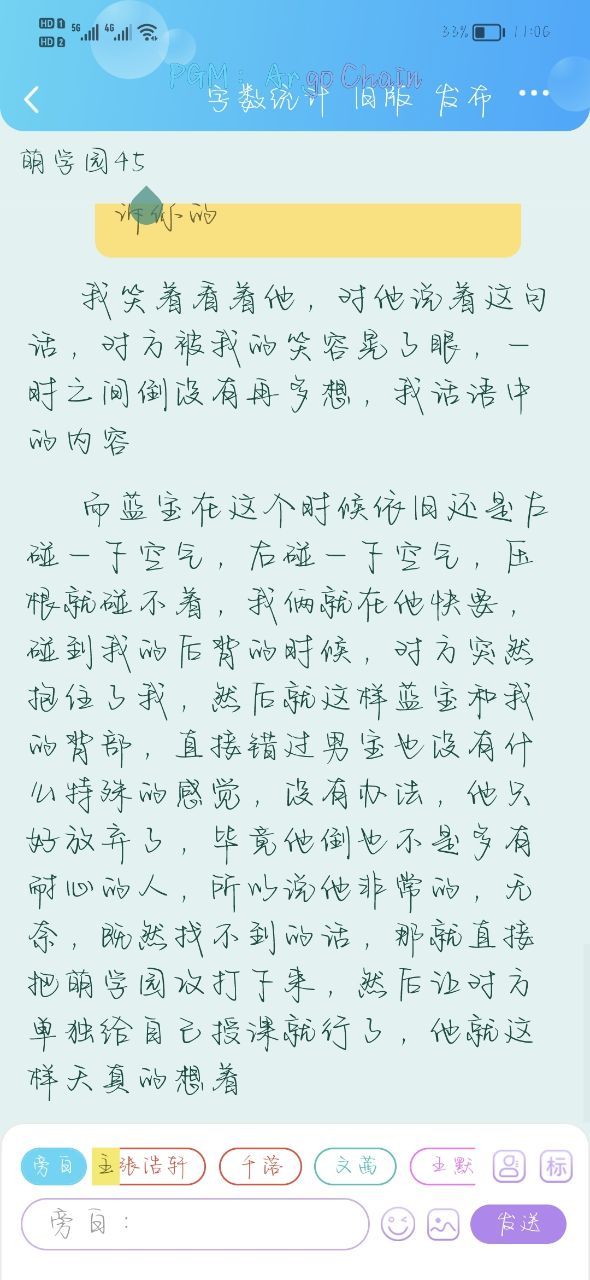 HD 1 5G 4G 33% 11:06
HD 2
PGM：Argo Chain
字数统计 旧版 发布 •••
萌学园45
你的
我笑着看着他，对他说着这句
话，对方被我的笑容晃了眼，一
时之间倒没有再多想，我话语中
的内容
而蓝宝在这个时候依旧还是左
碰一下空气，右碰一下空气，压
根就碰不着，我俩就在他快要，
碰到我的后背的时候，对方突然
抱住了我，然后就这样蓝宝和我
的背部，直接错过男宝也没有什
么特殊的感觉，没有办法，他只
好放弃了，毕竟他倒也不是多有
耐心的人，所以说他非常的，无
奈，既然找不到的话，那就直接
把萌学园攻打下来，然后让对方
单独给自己授课就行了，他就这
样天真的想着
旁白 主张浩轩 千落 文茜 王默 标
旁白： 发送